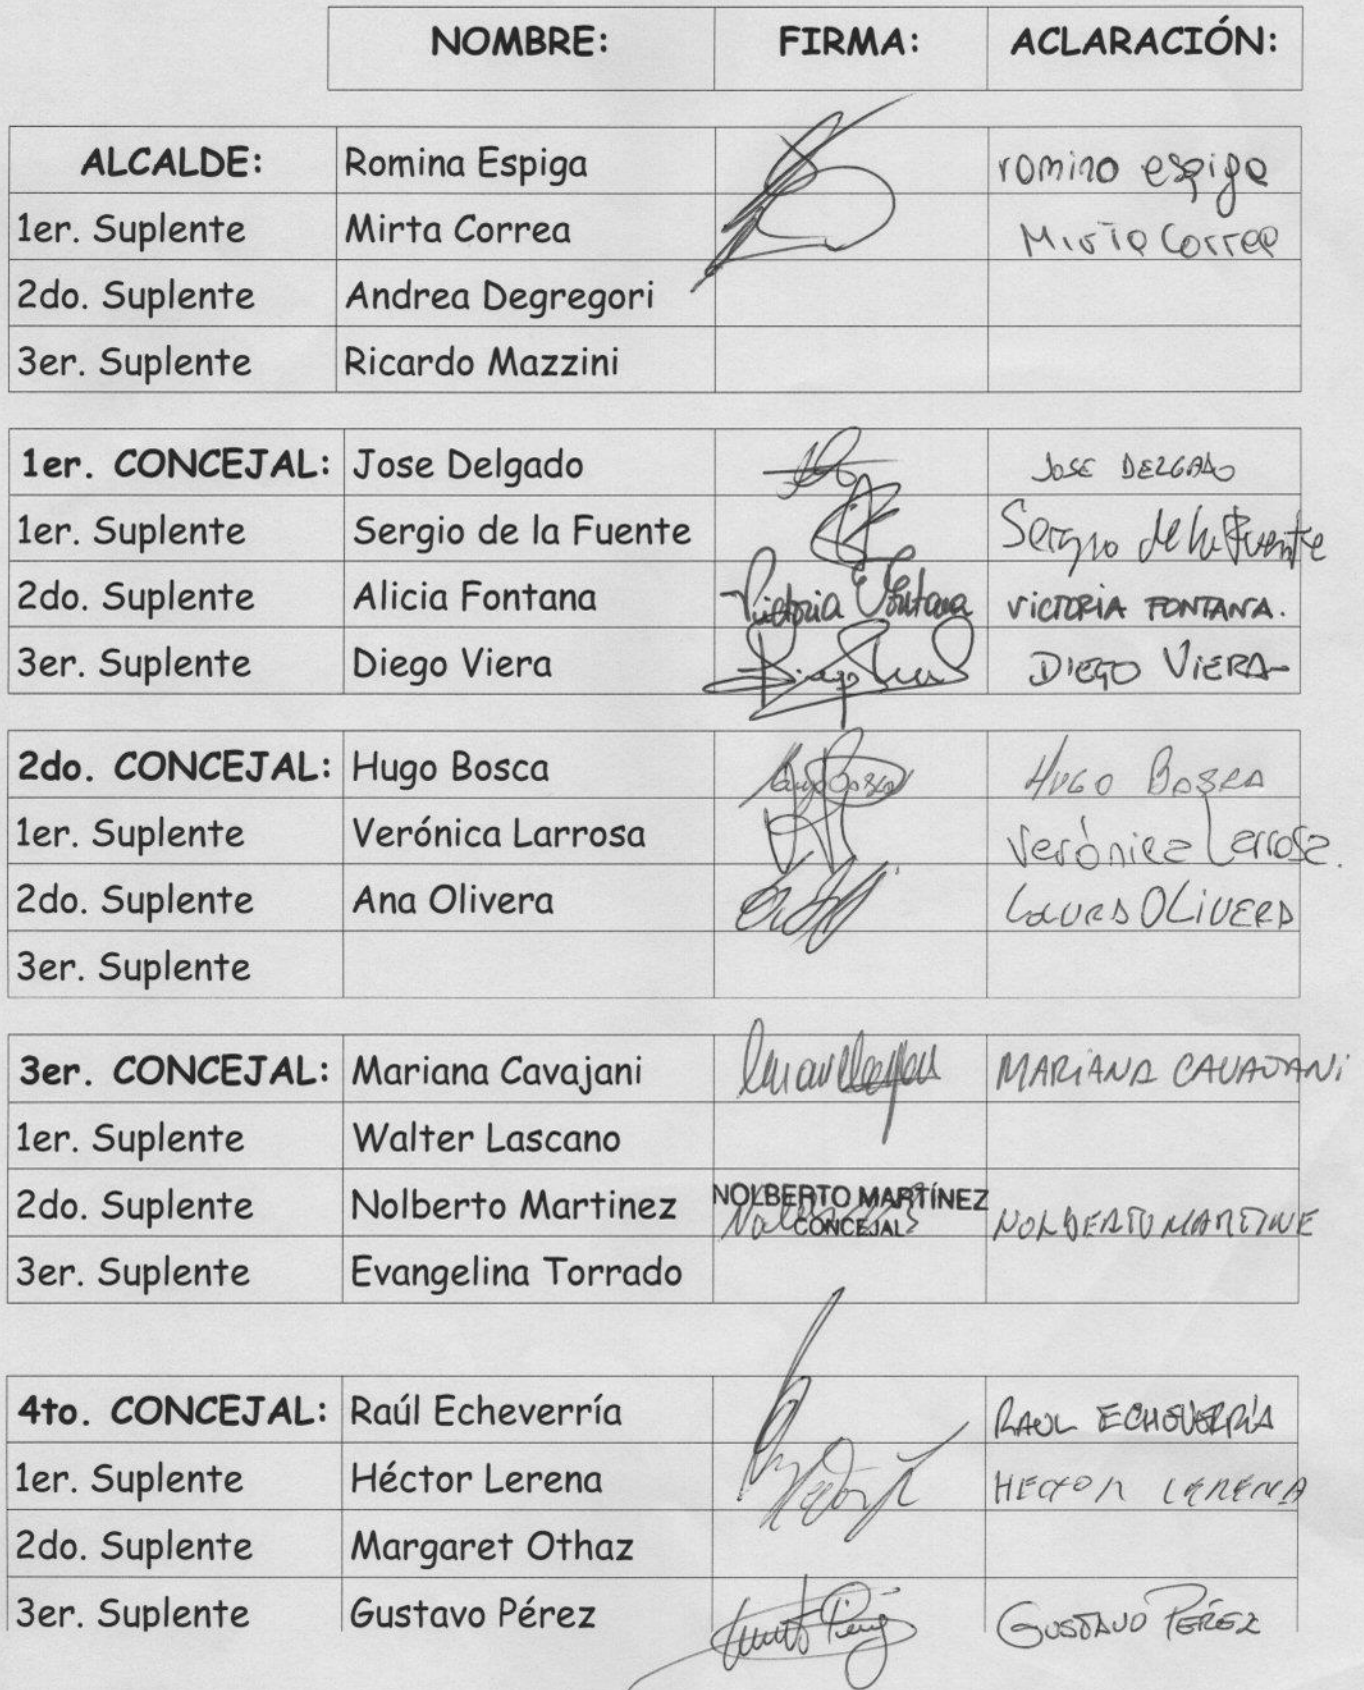 NOMBRE: FIRMA: ACLARACIÓN:
ALCALDE: Romina Espiga romina espiga
1er. Suplente Mirta Correa Mirta Correa
2do. Suplente Andrea Degregori
3er. Suplente Ricardo Mazzini
1er. CONCEJAL: Jose Delgado JOSE DELGADO
1er. Suplente Sergio de la Fuente Sergio de la Fuente
2do. Suplente Alicia Fontana Victoria Fontana VICTORIA FONTANA.
3er. Suplente Diego Viera DIEGO VIERA
2do. CONCEJAL: Hugo Bosca Hugo Bosca HUGO BOSCA
1er. Suplente Verónica Larrosa Verónica Larrosa.
2do. Suplente Ana Olivera Laura OLIVERA
3er. Suplente
3er. CONCEJAL: Mariana Cavajani MARIANA CAVAJANi
1er. Suplente Walter Lascano
2do. Suplente Nolberto Martinez NOLBERTO MARTÍNEZ NOLBERTO MARTINE
CONCEJAL
3er. Suplente Evangelina Torrado
4to. CONCEJAL: Raúl Echeverría RAUL ECHEVERRÍA
1er. Suplente Héctor Lerena HECTOR LERENA
2do. Suplente Margaret Othaz
3er. Suplente Gustavo Pérez GUSTAVO PÉREZ